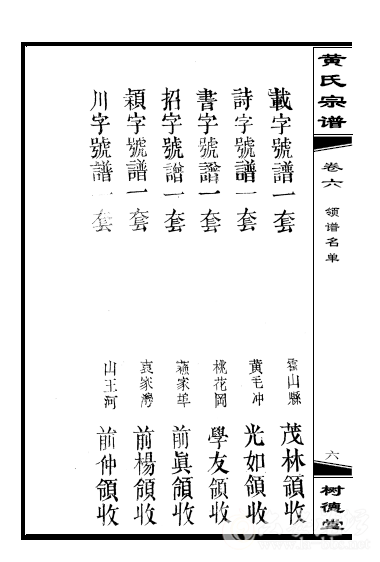 黄氏宗谱
卷六
领谱名单
六
树德堂
載字號譜一套 霍山縣 茂林領收
詩字號譜一套 黃毛冲 光如領收
書字號譜一套 桃花岡 學友領收
招字號譜一套 燕家埠 前眞領收
穎字號譜一套 袁家灣 前楊領收
川字號譜一套 山王河 前仲領收